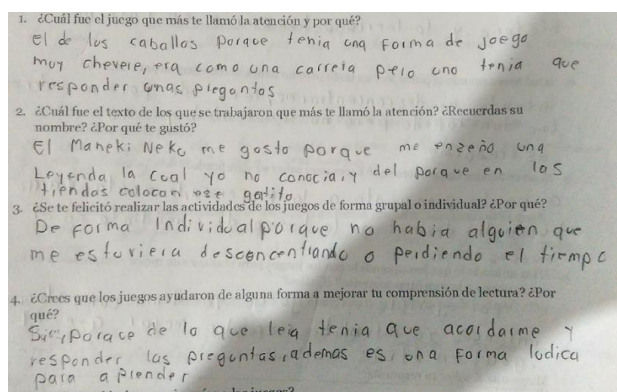 1. ¿Cuál fue el juego que más te llamó la atención y por qué?
el de los caballos porque tenia una forma de joego
muy chevere, era como una carreta pero uno tenia que
responder unas pregontas
2. ¿Cuál fue el texto de los que se trabajaron que más te llamó la atención? ¿Recuerdas su
nombre? ¿Por qué te gustó?
El Maneki Neko me gosto porque me enzeño una
Leyenda la cual yo no conocia, y del porque en los
tiendas colocan ese gatito
3. ¿Se te felicitó realizar las actividades de los juegos de forma grupal o individual? ¿Por qué?
De forma Individual porque no habia alguien que
me estuviera desconcentrando o perdiendo el tiempo
4. ¿Crees que los juegos ayudaron de alguna forma a mejorar tu comprensión de lectura? ¿Por
qué?
porque de lo que leia tenia que acordarme y
responder las pregontas, ademas es una forma ludica
para aprender